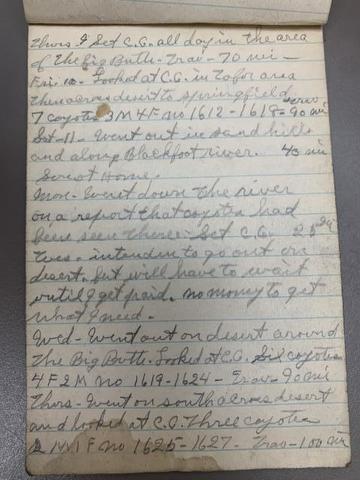 Thurs. 9 Set C.G. all day in the area
of the Big Butte - Trav - 70 mi -
Fri. 10 - Looked at C.G. in Tabor area
then across desert to Springfield
7 coyotes 3M 4F no 1612 - 1618 - Trav 90 mi
Sat - 11 - Went out in sand hills
and along Blackfoot river. 40 mi
Sun at Home.
Mon - Went down the river
on a report that coyotes had
been seen there - Set C.G. 25
Tues. - intended to go out on
desert. but will have to wait
until I get paid. no money to get
what I need.
Wed - Went out on desert around
the Big Butte. Looked at C.G. Six coyotes
4F 2M no 1619 - 1624 - Trav - 90 mi
Thurs - Went on south across desert
and looked at C.G. Three coyotes
2M 1F no 1625 - 1627 - Trav - 100 mi